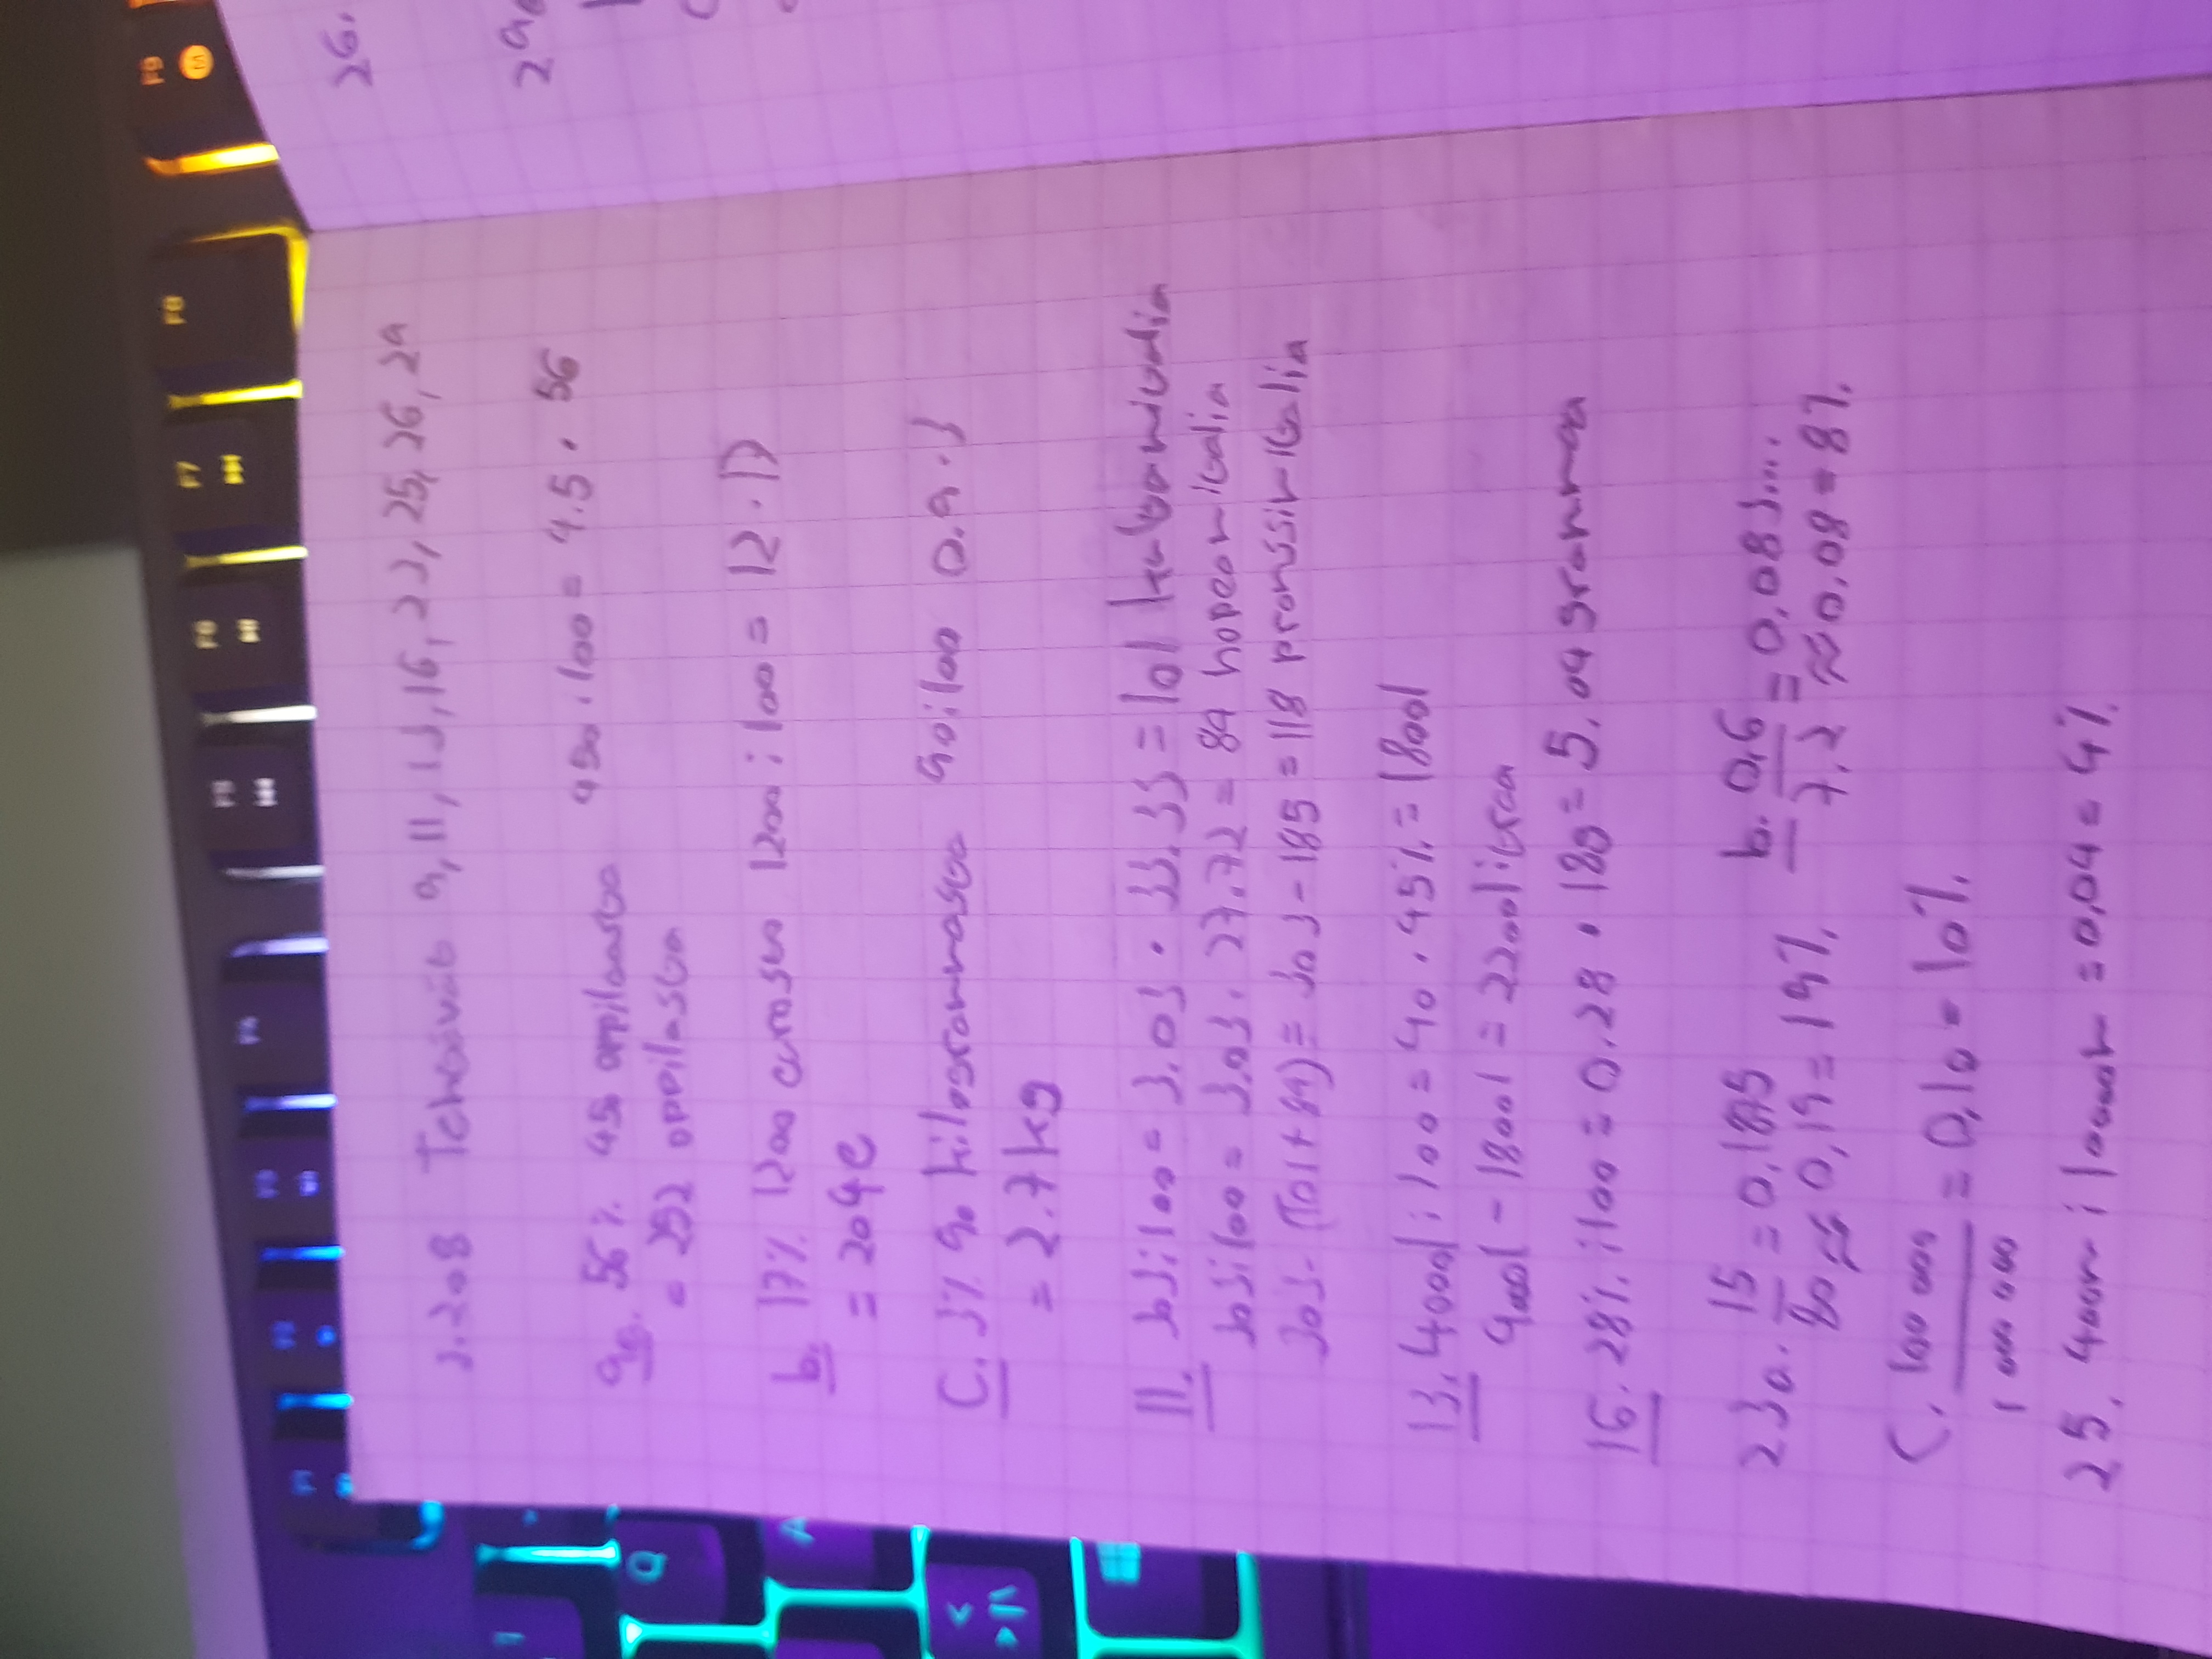 26.
29
2.208 Tehtävät 9, 11, 13, 16, 23, 25, 26, 29
9a. 56% 450 oppilaasta 450:100 = 4.5 · 56
= 252 oppilasta
b. 17% 1200 eurosta 1200:100 = 12 · 17
= 204€
C. 3% 90 kilogrammasta 90:100 0.9 · 3
= 2.7 kg
11. 303:100 = 3.03 · 33.33 = 101 kultamitalia
303:100 = 3.03 · 27.72 = 84 hopeamitalia
303 - (101 + 84) = 303 - 185 = 118 pronssimitalia
13. 4000l : 100 = 40 · 45% = 1800l
4000l - 1800l = 2200 litraa
16. 28% : 100 = 0.28 · 18g = 5.04 grammaa
23a. 15 = 0,1875 b. 0,6 = 0,083....
80 ≈ 0,19 = 19% 7,2 ≈ 0,08 = 8%
C. 100 000 = 0,10 = 10%
1 000 000
25. 400m : 10000m = 0,04 = 4%
F1
F2
F3
F4
F5
F6
F7
F8
F9
Q
A
<
>|\